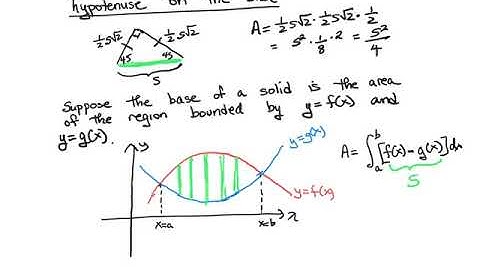 hypotenuse on the base
½s√2
½s√2
45
45
S
A = ½s√2 · ½s√2 · ½
= s² · ⅛ · 2 = s²/4
Suppose the base of a solid is the area
of the region bounded by y = f(x) and
y = g(x).
y
y=g(x)
y=f(x)
x
x=a
x=b
A = ∫ₐᵇ [f(x) - g(x)] dx
S